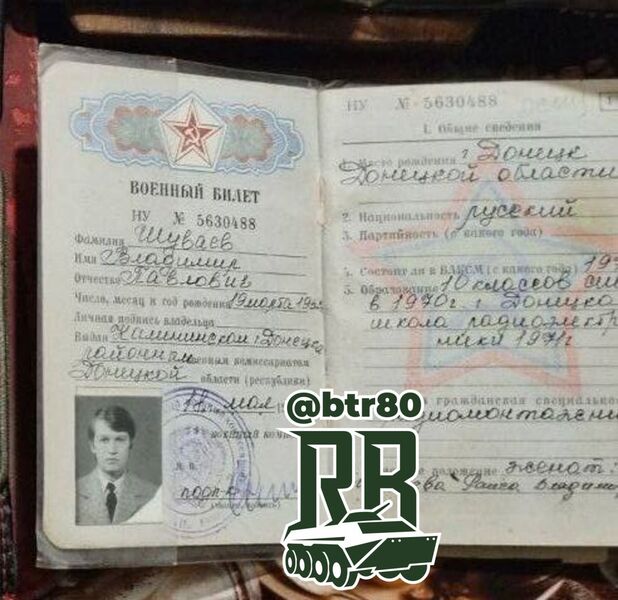 ВОЕННЫЙ БИЛЕТ
НУ № 5630488
Фамилия Шуваев
Имя Владимир
Отчество Павлович
Число, месяц и год рождения 19 марта 195
Личная подпись владельца
Выдан Калининским г. Донецка
районным военным комиссариатом
Донецкой области (республики)
18 мая
М. П.
НУ № 5630488
1
I. Общие сведения
1. Место рождения г. Донецк
Донецкой области
2. Национальность русский
3. Партийность (с какого года)
4. Состоит ли в ВЛКСМ (с какого года) 19
5. Образование 10 классов
в 1970г. г. Донецка
школа радиоэлектро
ники 1971г
гражданская специально
радиомонтажни
положение женат:
Раиса Владими
@btr80
RB